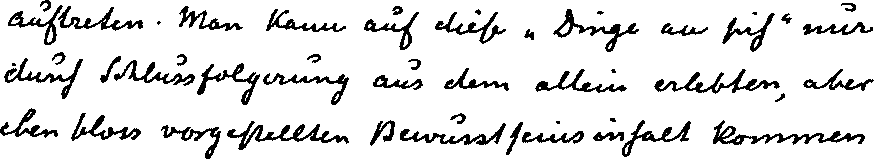 auftreten. Man kann auf diese „Dinge an sich“ nur
durch Schlussfolgerung aus dem allein erlebten, aber
eben bloss vorgestellten Bewusstseinsinhalt kommen